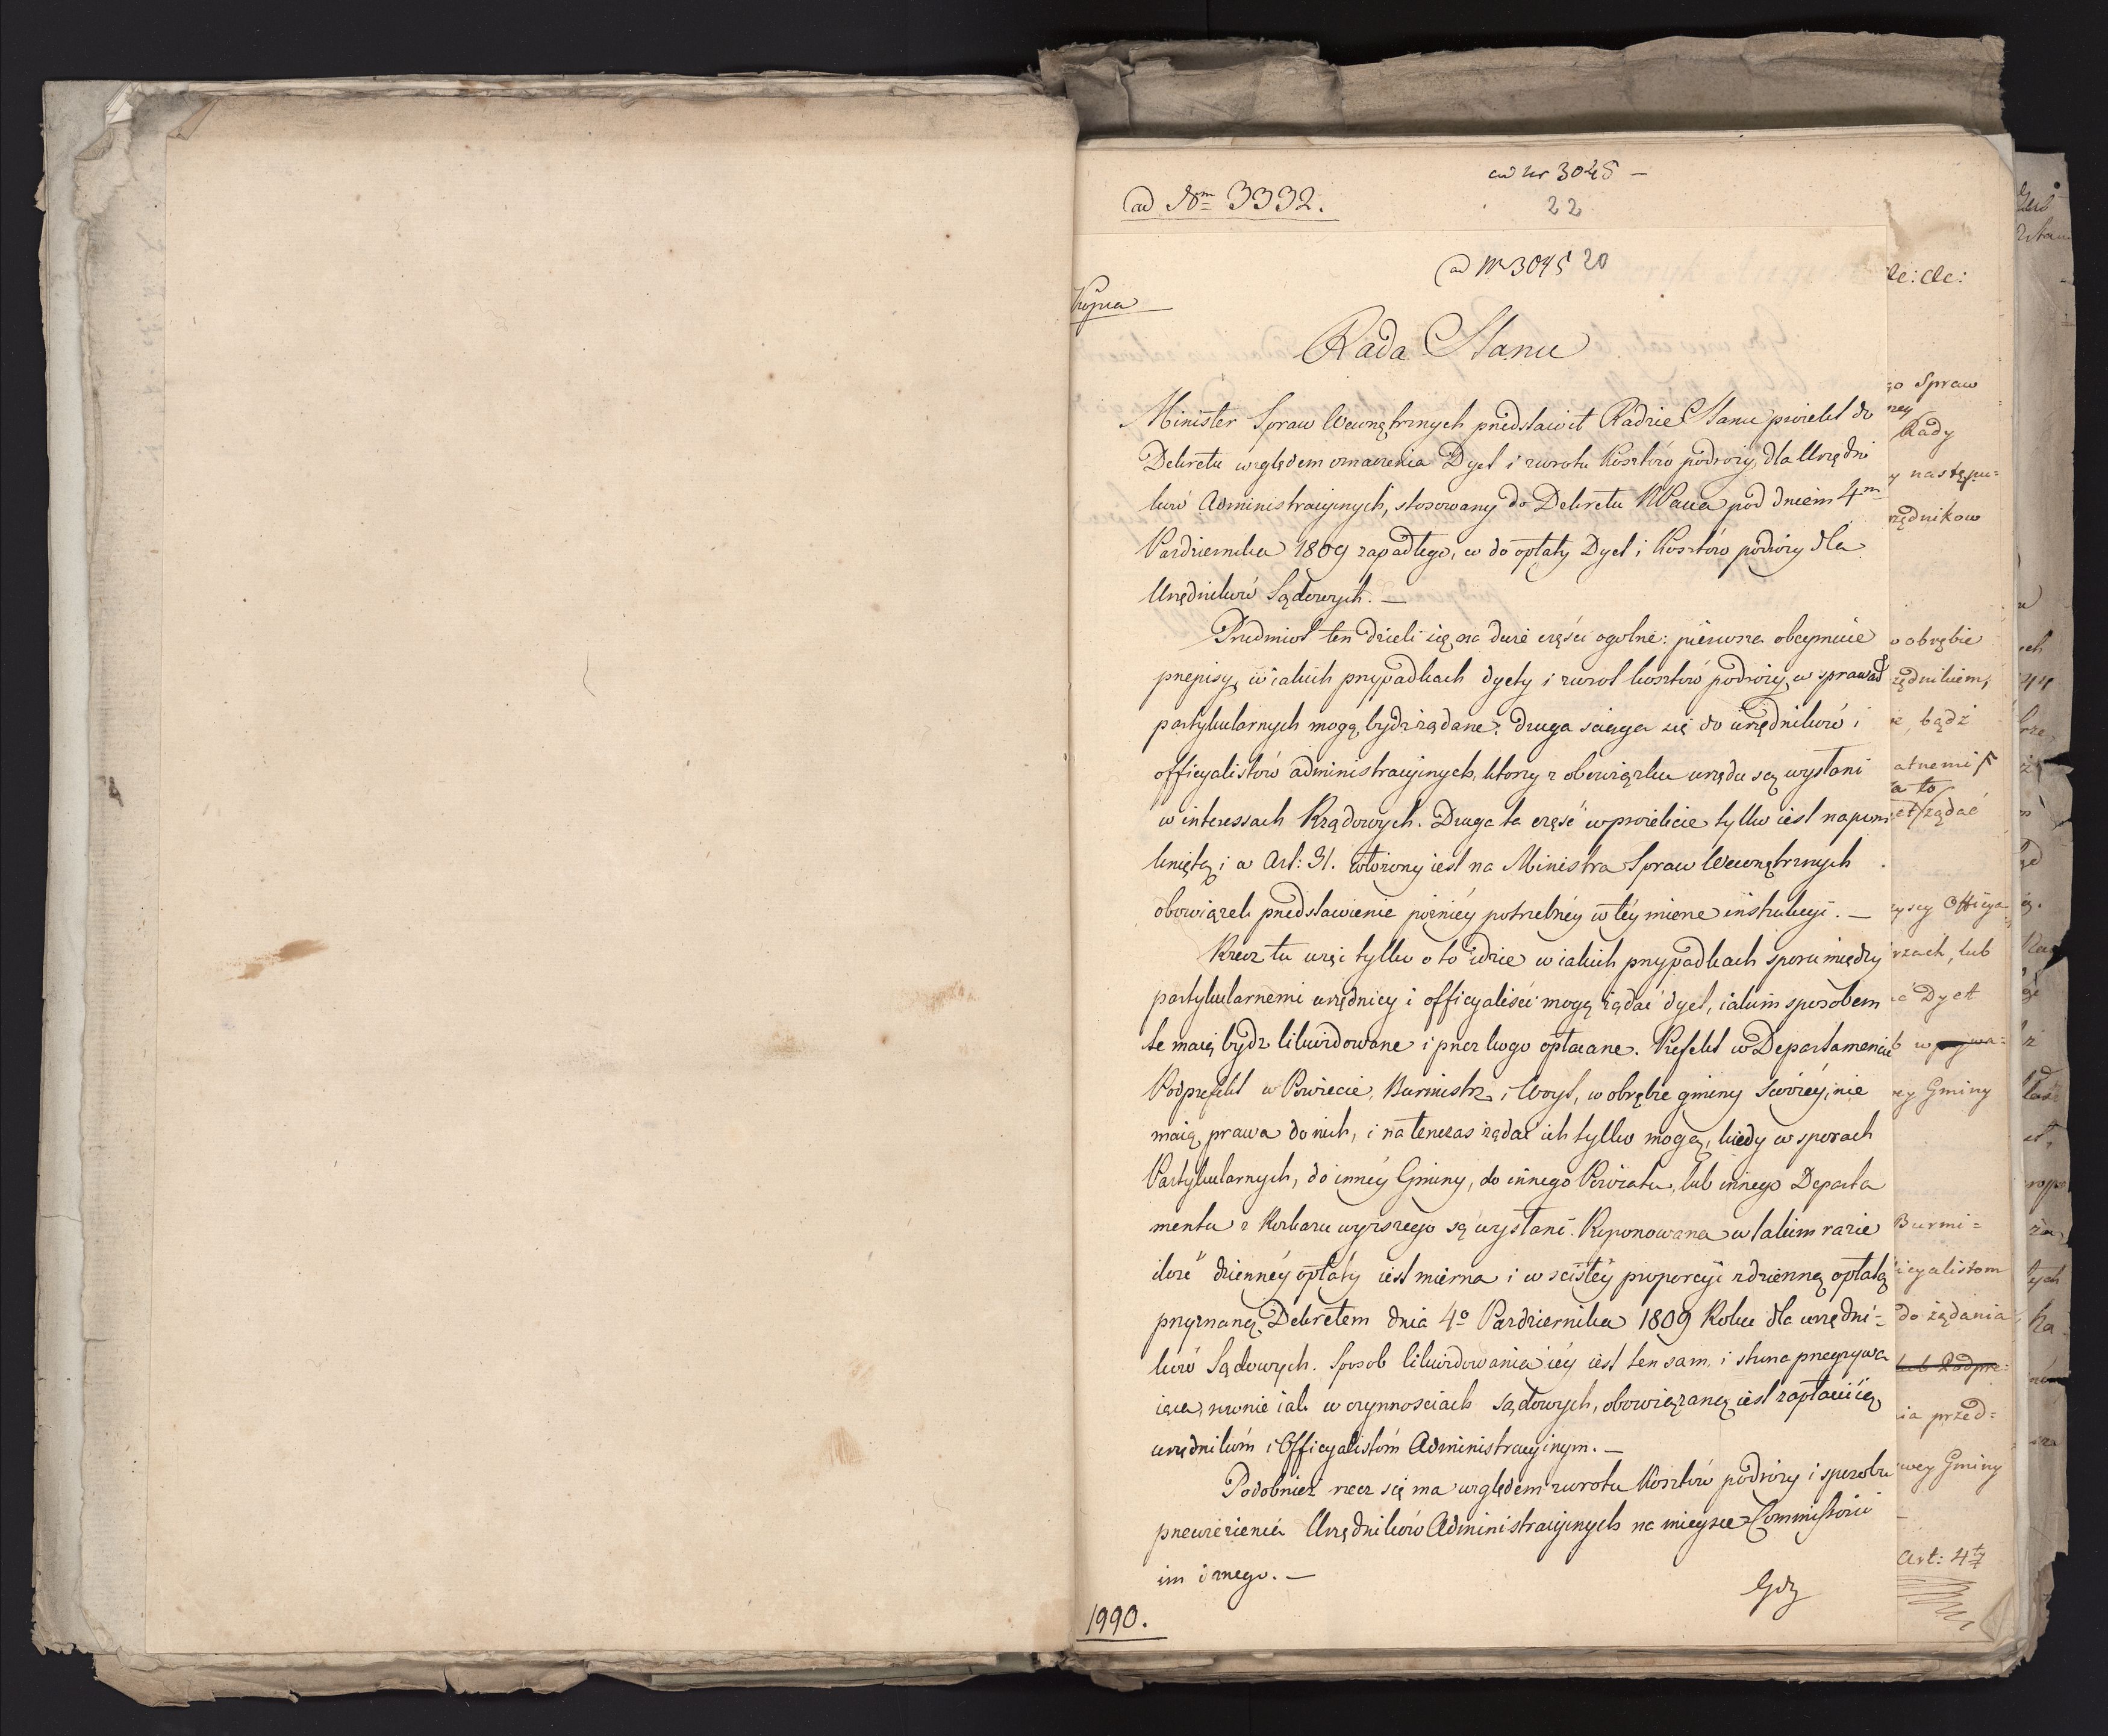 ad Nrm 3332.
ad nr 3045 —
22
ad Nr 3045 20
Kopia
Rada Stanu
Minister Spraw Wewnętrznych przedstawił Radzie Stanu proiekt do
Dekretu względem oznaczenia Dyet i zwrotu kosztów podroży, dla Urzędni
ków Administracyinych, stosowany do Dekretu NPana pod dniem 4m
Pazdziernika 1809 zapadłego, co do opłaty Dyet i kosztów podróży dla
Urzędników Sądowych. —
Przedmiot ten dzieli się na dwie części ogolne: pierwsza obeymuie
przepisy, w iakich przypadkach dyety i zwrot kosztów podroży, w sprawach
partykularnych mogą bydź żądane; druga sciąga się do urzędników i
officyalistów administracyinych, ktorzy z obowiązku urzędu są wysłani
w interessach Rządowych. Druga ta część w proiekcie tylko iest napom
knięta, i w Art: 31. włożony iest na Ministra Spraw Wewnętrznych
obowiązek przedstawienie pożniéy potrzebnéy w téy mierze instrukcyi. —
Rzecz tu więc tylko o to idzie w iakich przypadkach sporu między
partykularnemi urzędnicy i officyaliści mogą żądać dyet, iakim sposobem
te maią bydz likwidowane i przez kogo opłacane. Prefekt w Departamencie
Podprefekt w Powiecie, Burmistrz i Woyt, w obrębie gminy swoiéy, nie
maią prawa do nich, i na tenczas żądać ich tylko mogą, kiedy w sporach
Partykularnych, do innéy Gminy, do innego Powiatu, lub innego Departa
mentu z Rozkazu wyższego są wysłani. Proponowana w takim razie
ilość dziennéy opłaty iest mierna i w scisłéy proporcyi z dzienną opłatą
przyznaną Dekretem dnia 4o Pazdziernika 1809 Roku dla urzędni-
ków Sądowych. Sposob likwidowania iéy iest ten sam, i strona przegrywa
iąca, rownie iak w czynnosciach sądowych, obowiązaną iest zapłacić ią
urzędnikóm i Officyalistóm Administracyinym. —
Podobnież rzecz się ma względem zwrotu kosztów podróży i sposobu
przewiezienia Urzędników Administracyinych na mieysce Commissorii
im danego. —
Gdy
1990.
&c: &c:
go Spraw
Rady
y następu-
rzędnikow
w obrębie
rzędnikiem,
bądź
a to
żądać
Officya
rzach, lub
Dyet
ey Gminy
Burmi-
icyalistom
do żądania
lub Podpre-
ia przed-
wey Gminy
Art: 4ty